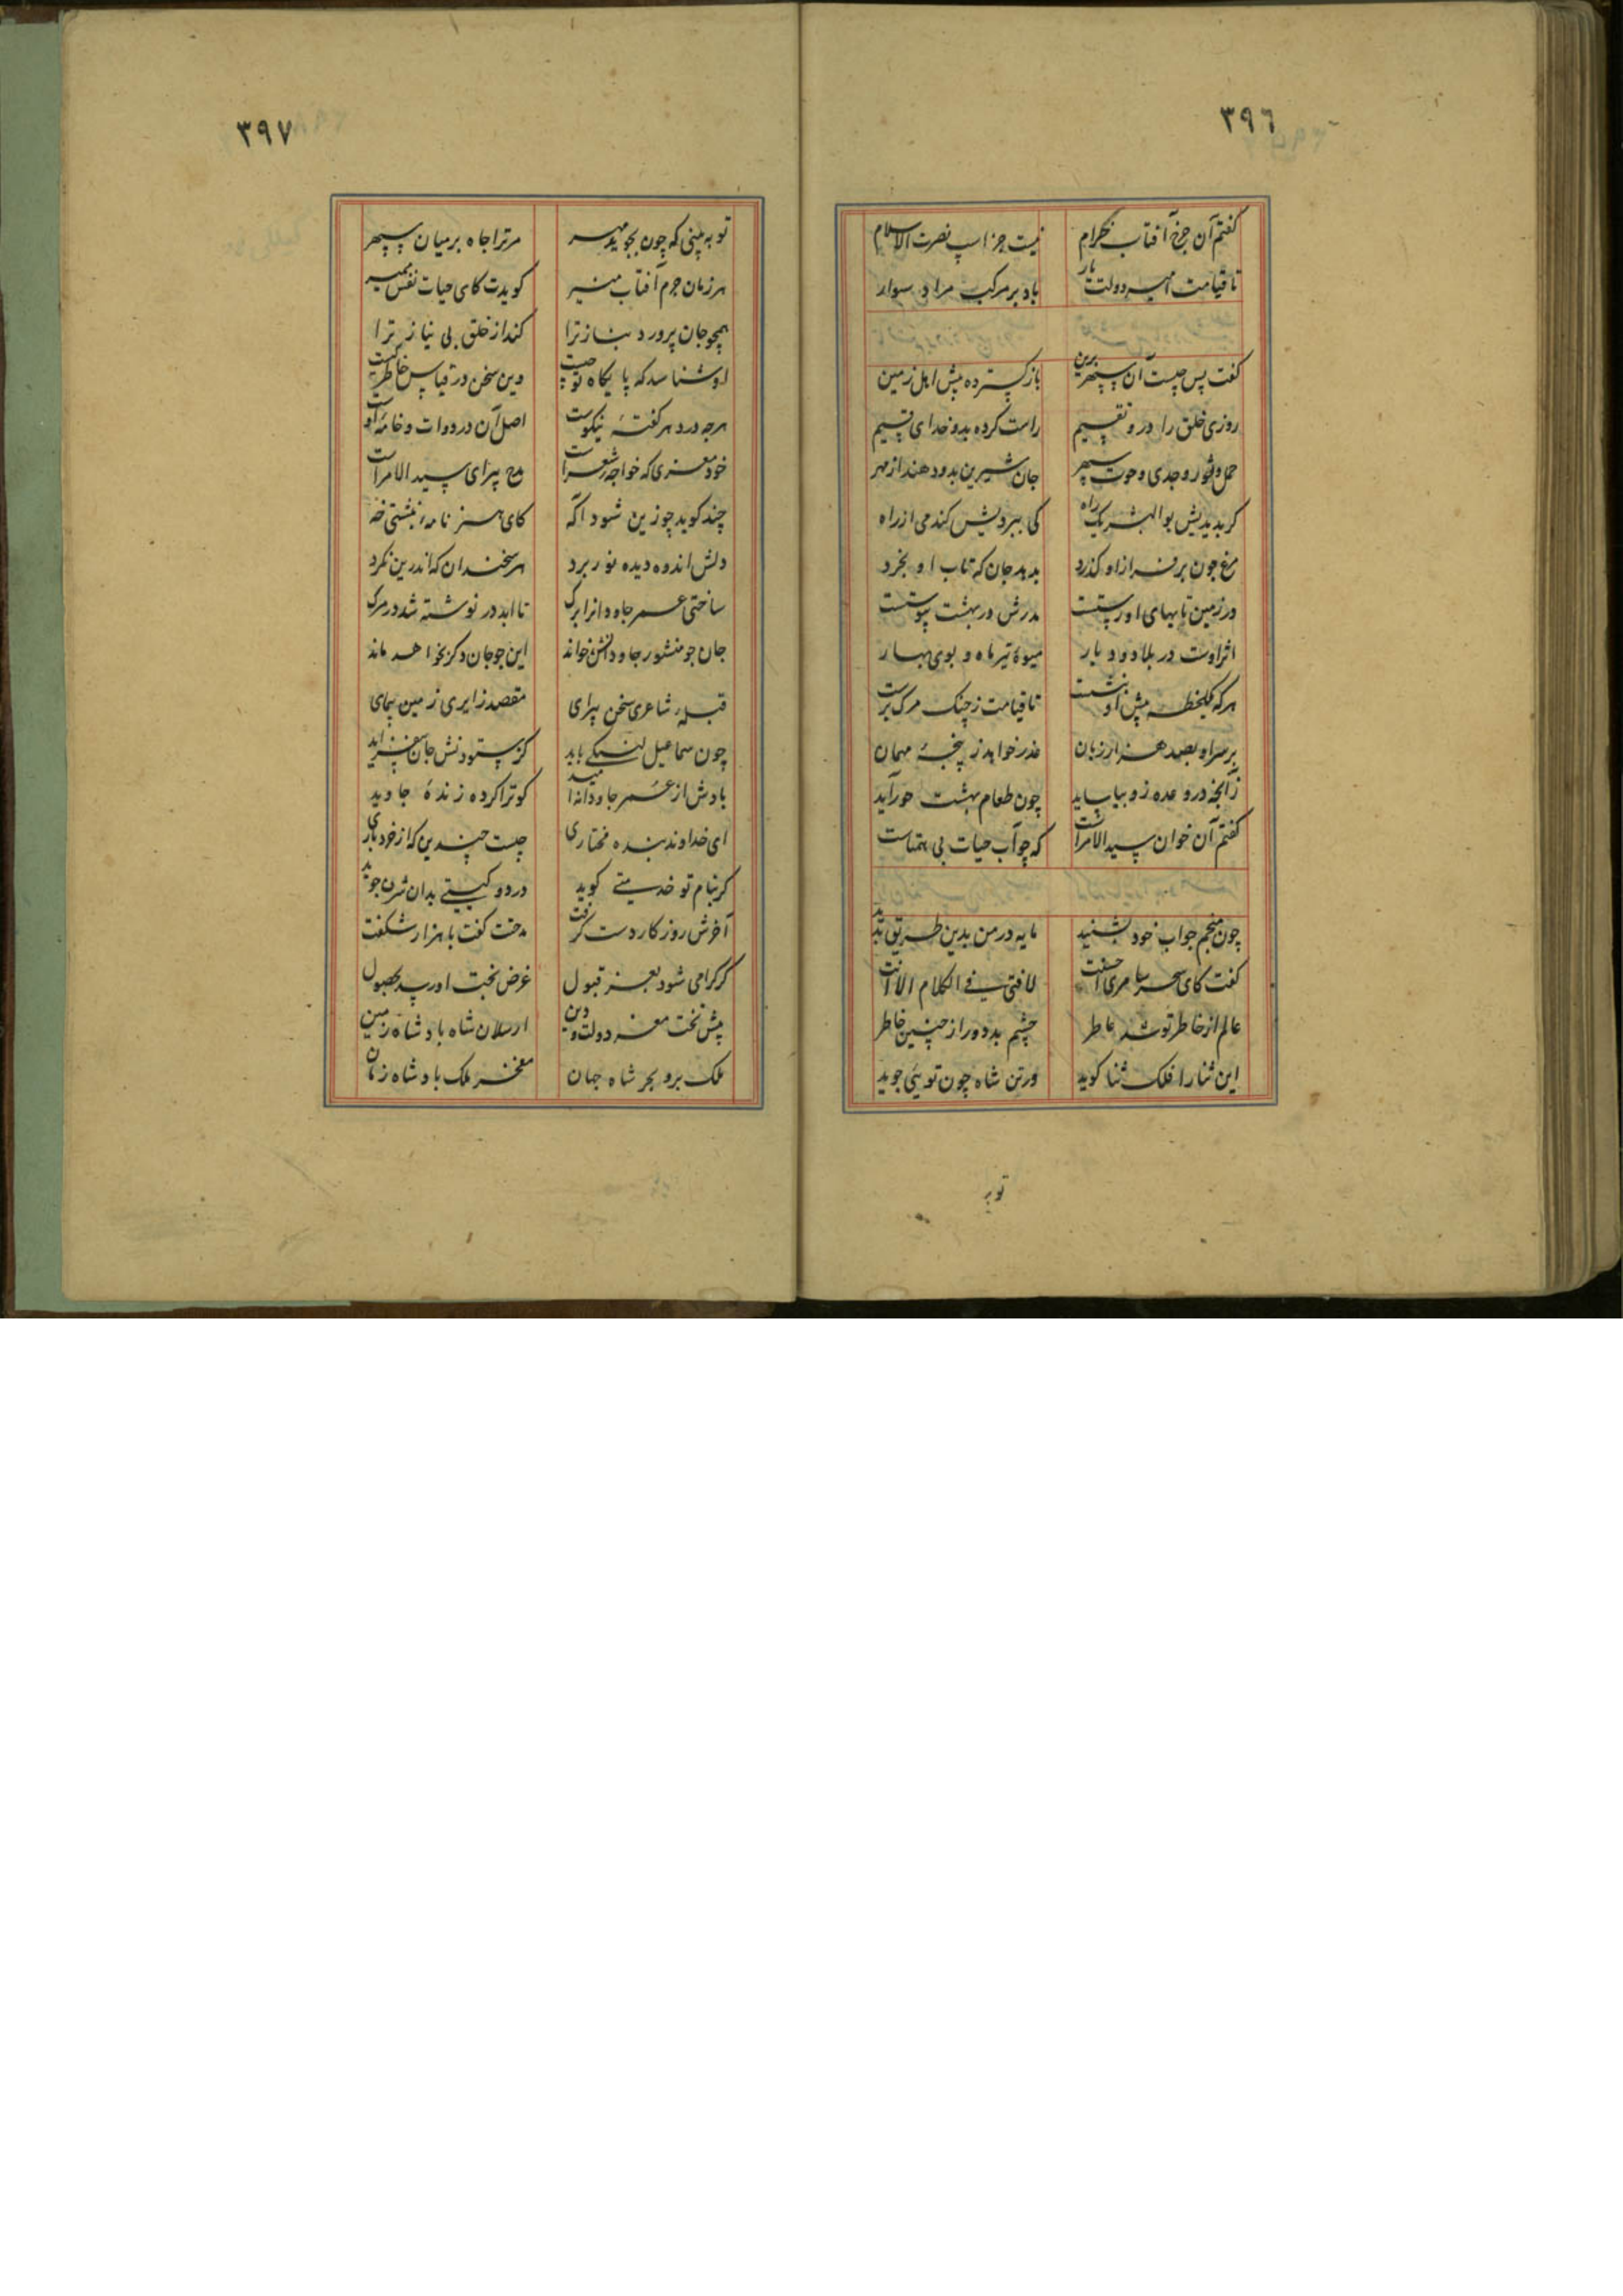 ٣٩٦
گفتم آن چرخ آفتاب خرام نیست جز اسپ نصرت الاسلام
تا قیامت امیر دولت یار باد بر مرکب مراد سوار
گفت پس چیست آن سپهر برین باز گسترده پیش اهل زمین
روزی خلق را درو تقسیم راست کرده بدو خدای قسیم
حمل و ثور و جدی و حوت سپهر جان شیرین بدو دهند از مهر
کر بدیدیش بو البشر یک راه کی ببردیش کندمی از راه
مرغ چون بر فراز او کذرد بدهد جان که تاب او بخرد
در زمین تا بهای او رستست مدرش در بهشت پیوستست
اثر اوست در بلاد و دیار میوۀ تیر ماه و بوی بهار
هرکه یکلحظه پیش او بنشست تا قیامت ز چنک مرک برست
بر سر او بصد هزار زبان عذر خواهد ز پنجۀ مهمان
زانچه در وعده زو بیاساید چون طعام بهشت حور آید
گفتم آن خوان سید الامراست که چو آب حیات بی همتاست
چون منجم جواب خود بشنید مایه در من بدین طریق بدید
گفت کای سحر سامری احسنت لا فتی فی الکلام الا انت
عالم از خاطر تو شد عاطر چشم بد دور از چنین خاطر
این ثنا را فلک ثنا کوید ورتن شاه چون توئی جوید
تو به
٣٩٧
تو به بینی که چون بجوید مهر مر ترا جاه بر میان سپهر
هر زمان جرم آفتاب منیر کویدت کای حیات نفس بمیر
همچو جان پرورد بناز ترا کند از خلق بی نیاز ترا
او شناسد که پایگاه تو چیست وین سخن در قیاس خاطر کیست
هرچه درد هر گفتۀ نیکوست اصل آن در دوات و خامۀ اوست
خود معزی که خواجۀ شعراست مدح پیرای سید الامراست
چند کوید چو زین شود آگه کای هنر نامۀ بنشتی خه
دلش اندوه دیده نو ربرد هر سخندان که اندرین نکرد
ساختی عمر جاودانرا برک تا ابد در نوشته شد در مرک
جان چو منشور جاودانش خواند این چو جان دکر بخواهد ماند
قبلۀ شاعری سخن پیرای مقصد زایری زمین پیمای
چون سماعیل لشکی باید کز ستودنش جان بیفزاید
بادش از عمر جاودان امید کو ترا کرده زندۀ جاوید
ای خداوند بنده مختاری چیست چندین که از خود باری
کر بنام تو خدمتی کوید در دو کیتی بدان شرف جوید
آخرش روزگار دست گرفت مدحت کفت با هزار شکفت
کر کرامی شود بعز قبول غرض بخت او رسد بحصول
پیش تخت معز دولت و دین ارسلان شاه پادشاه زمین
ملک بر و بحر شاه جهان مفخر ملک پادشاه زمان